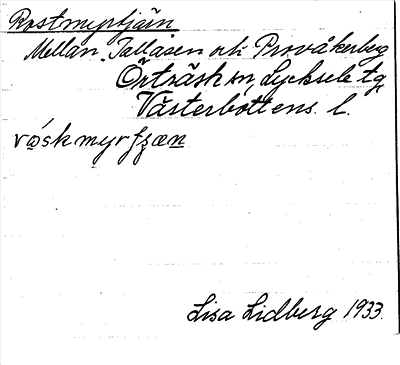 Rostmyrtjärn
Mellan Tallåsen och Provåkerbeg
Örträsk sn, Lycksele tg
Västerbottens. l.
våskmyrfʒæn
Lisa Lidberg 1933.